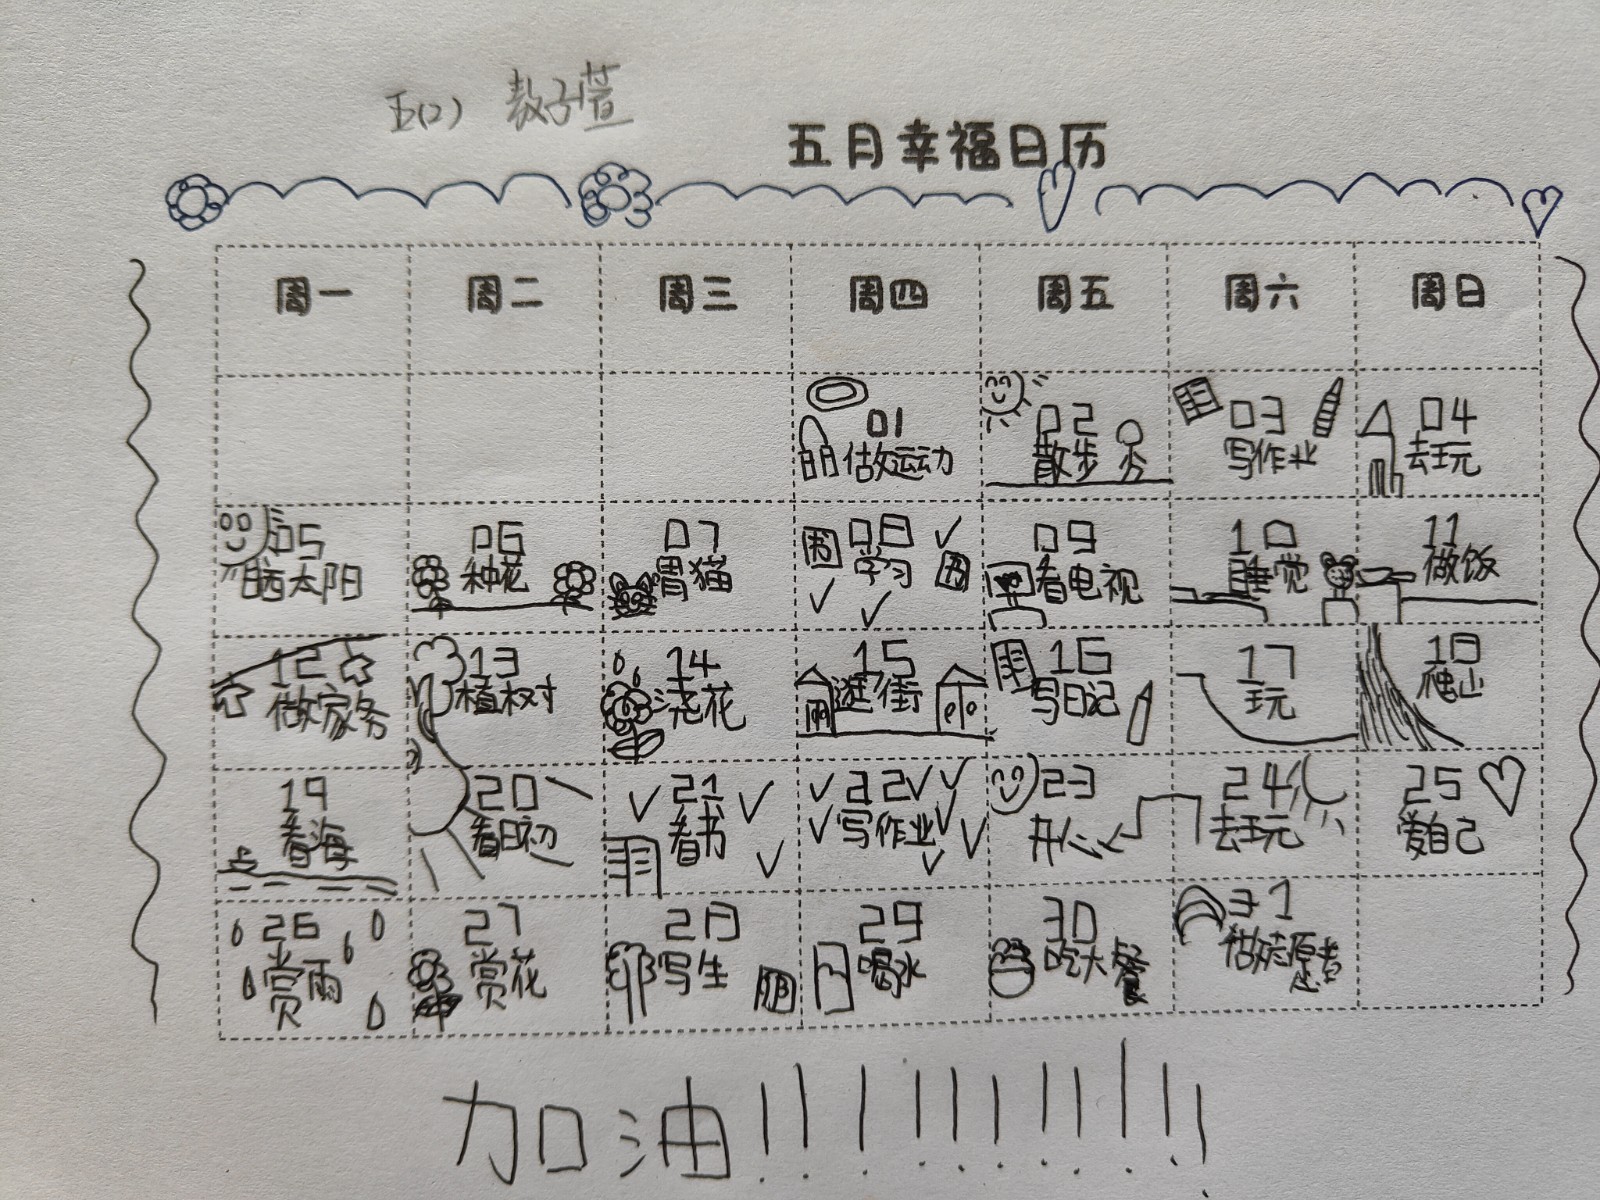 五(2) 敖子萱
五月幸福日历
周一 周二 周三 周四 周五 周六 周日
01 02 03 04
做运动 散步 写作业 去玩
05 06 07 08 09 10 11
晒太阳 种花 撸猫 学习 看电视 睡觉 做饭
12 13 14 15 16 17 18
做家务 植树 浇花 逛街 写日记 玩 爬山
19 20 21 22 23 24 25
看海 看日初 看书 写作业 开心 去玩 爱自己
26 27 28 29 30 31
赏雨 赏花 写生 喝水 吃大餐 做志愿者
加油!!!!!!!!!!!